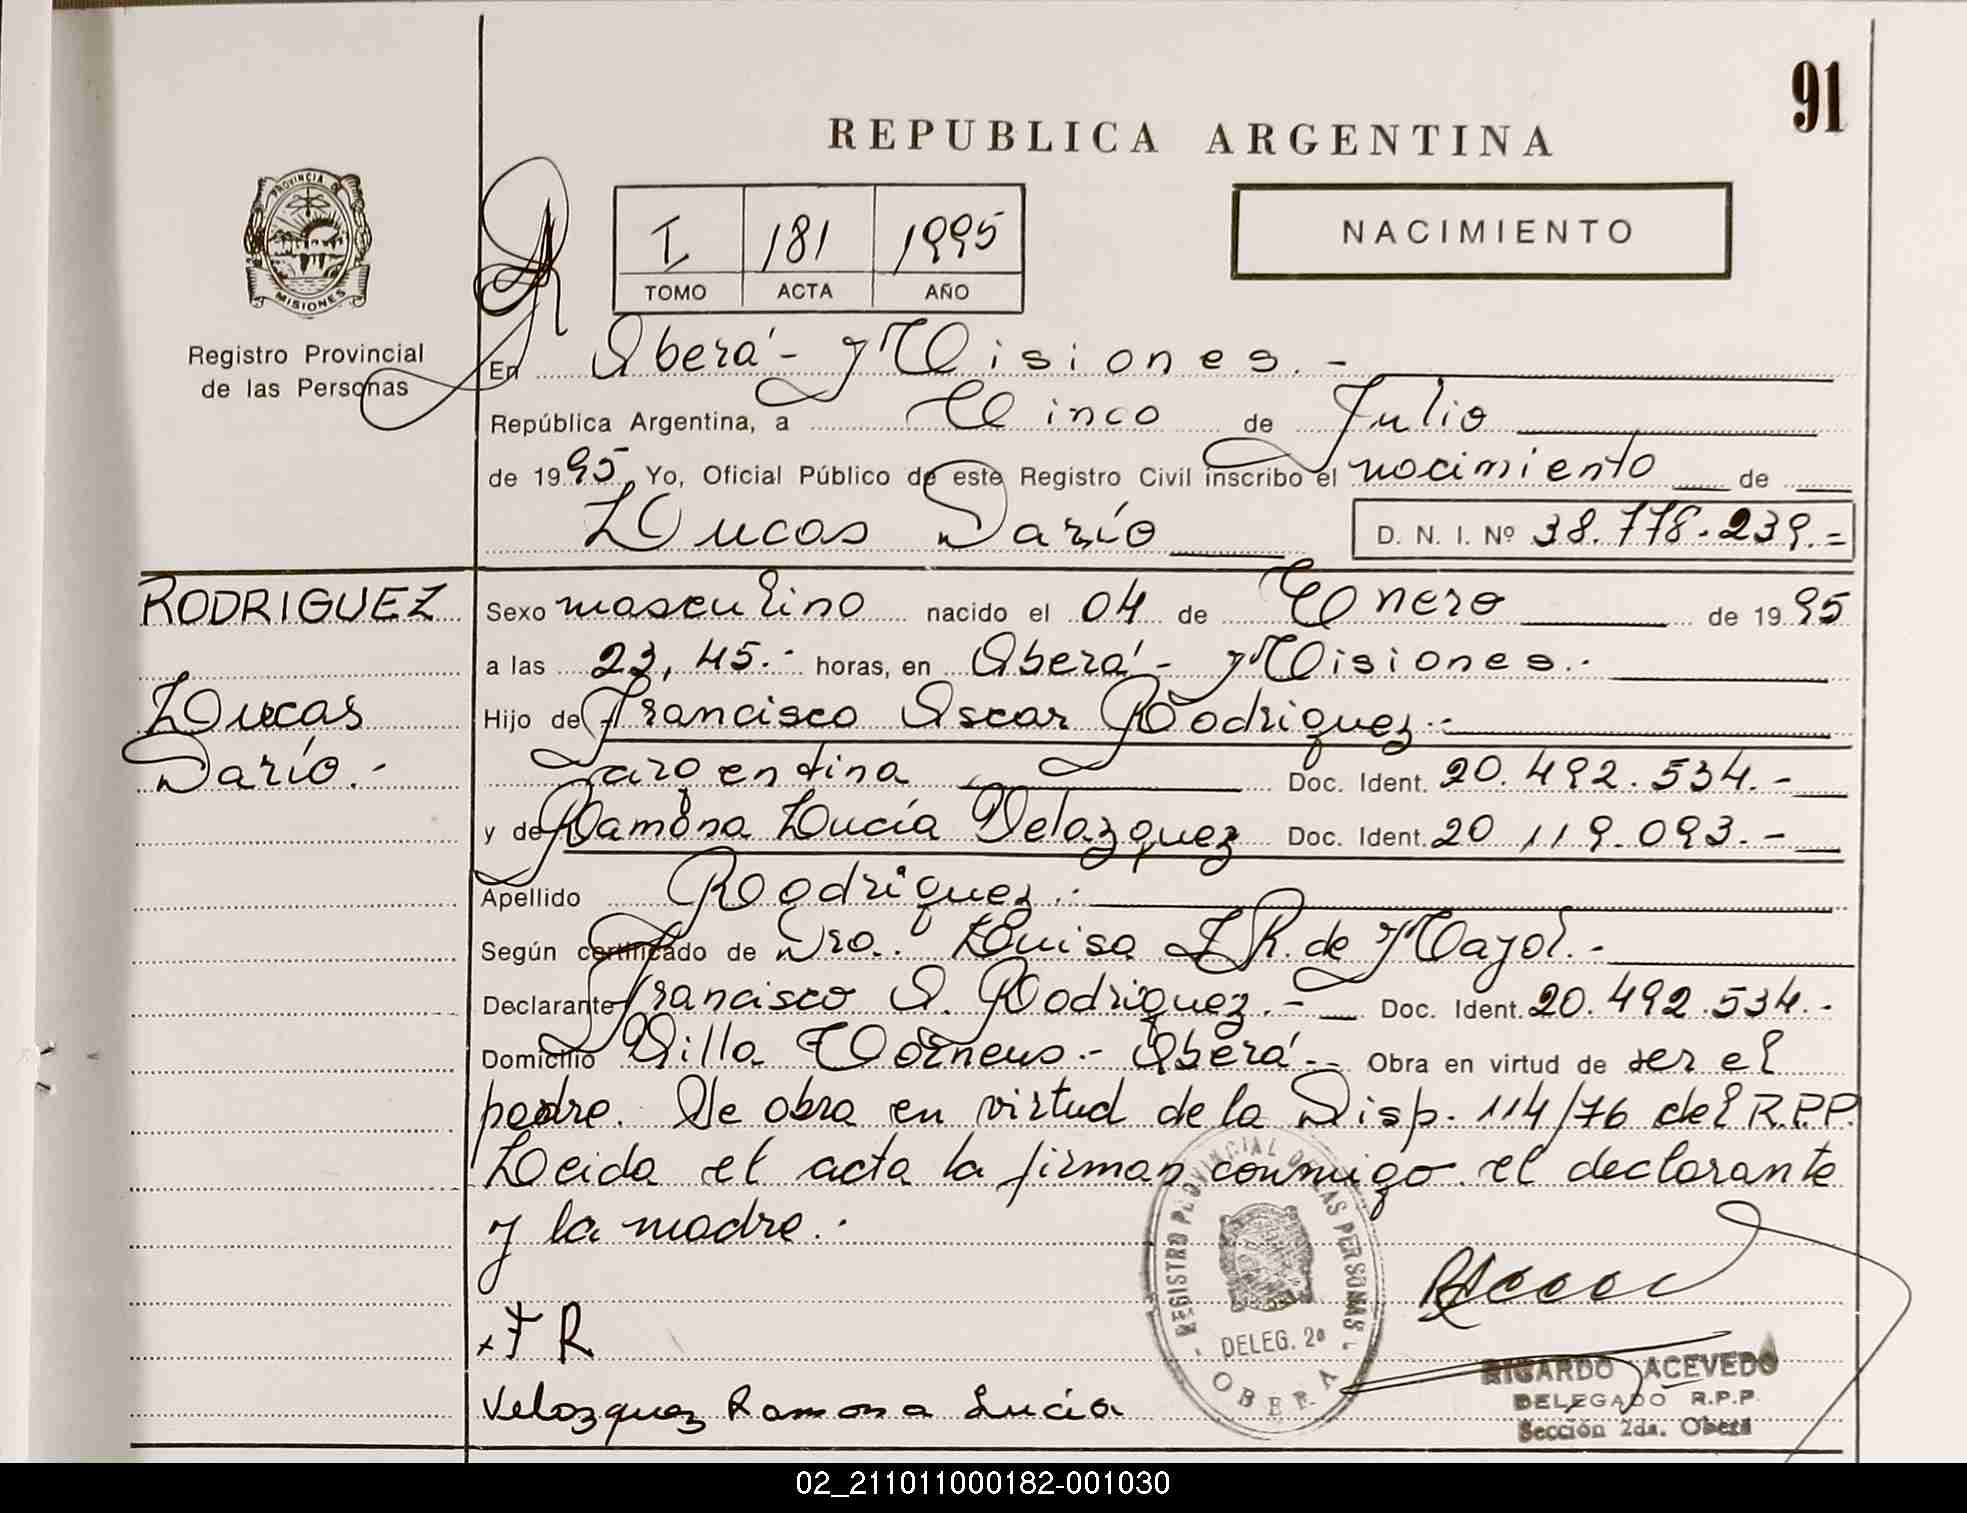 91
REPUBLICA ARGENTINA
PROVINCIA DE
MISIONES
Registro Provincial
de las Personas
I 181 1995
TOMO ACTA AÑO
NACIMIENTO
En Oberá - Misiones.-
República Argentina, a Cinco de Julio
de 1995 Yo, Oficial Público de este Registro Civil inscribo el nacimiento de
Lucas Darío D. N. I. Nº 38.778.239.=
RODRIGUEZ
Lucas
Darío.-
Sexo masculino nacido el 04 de Enero de 1995
a las 23,45.- horas, en Oberá - Misiones.-
Hijo de Francisco Oscar Rodriguez.-
argentina Doc. Ident. 20.492.534.-
y de Ramona Lucía Velazquez Doc. Ident. 20 119.093.-
Apellido Rodriguez.-
Según certificado de Dra. Luisa I R. de Mayol.-
Declarante Francisco O. Rodriguez.- Doc. Ident. 20.492.534.-
Domicilio Villa - Oberá.- Obra en virtud de ser el
padre. Se obra en virtud de la Disp. 114/76 del R.P.P.
Leida el acta la firman conmigo el declarante
y la madre.-
x F R
Velazquez Ramona Lucía
REGISTRO PROVINCIAL DE LAS PERSONAS
DELEG. 2ª
OBERA
RICARDO ACEVEDO
DELEGADO R.P.P.
Sección 2da. Oberá
02_211011000182-001030